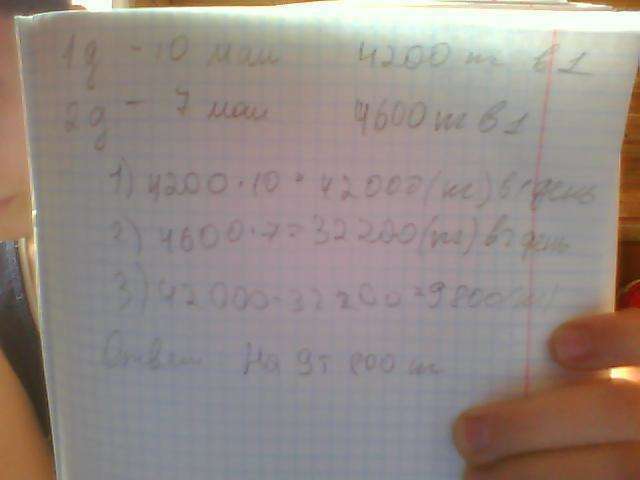 1д - 10 маш 4200 кг в 1
2д - 7 маш 4600 кг в 1
1) 4200·10=42000(кг) в 1 день
2) 4600·7=32200(кг) в 2 день
3) 42000-32200=9800(кг)
Ответ На 9т 800 кг